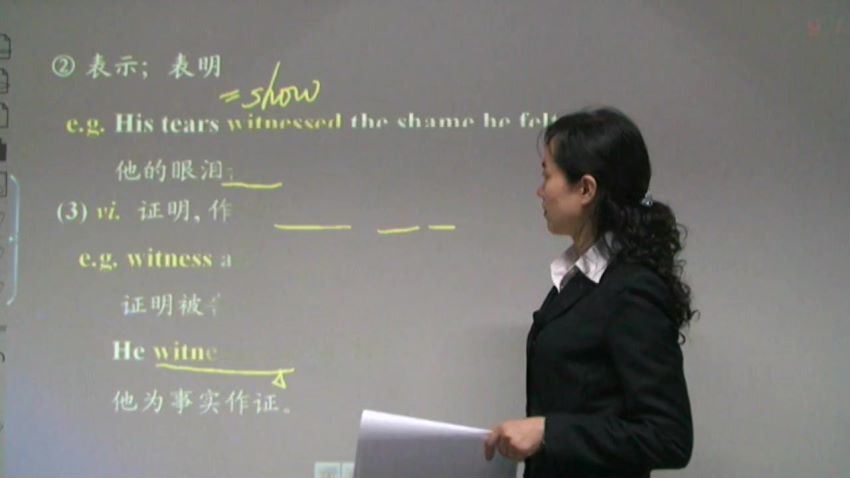 ② 表示；表明
= show
e.g. His tears witnessed the shame he felt
他的眼泪
(3) vi. 证明，作
e.g. witness a
证明被
He witne
他为事实作证。